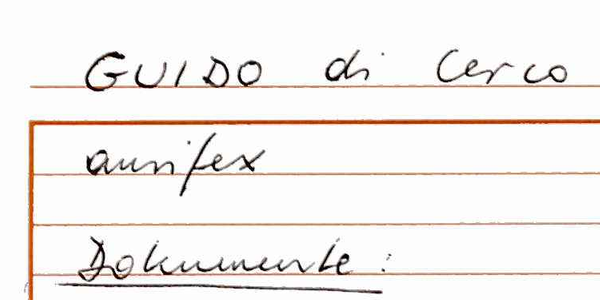 GUIDO di Cerco
aurifex
Dokumente: